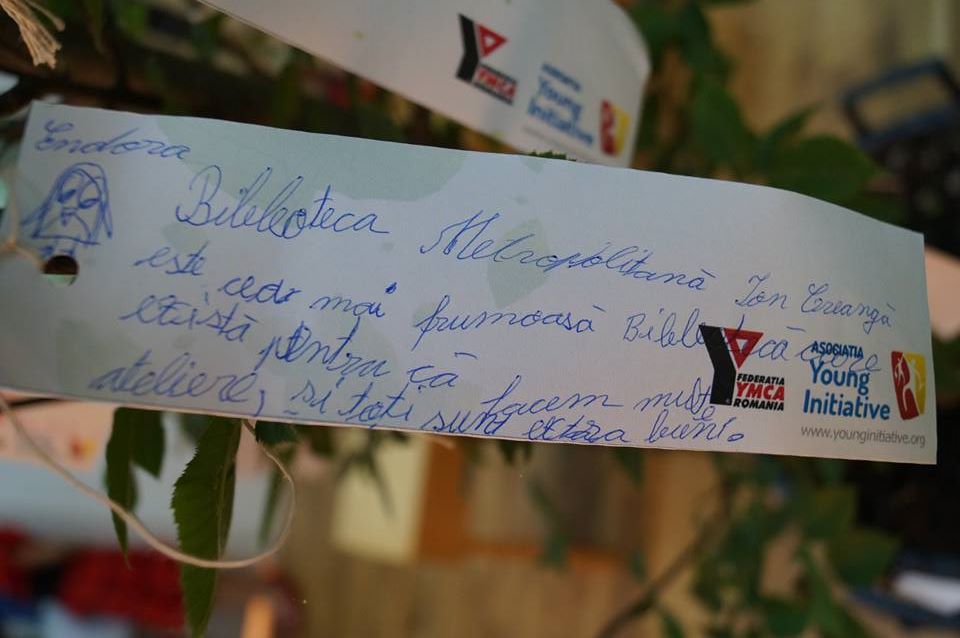 YMCA
ASOCIATIA
Young
Initiative
Endora
Biblioteca Metropolitană Ion Creangă
este cea mai frumoasă Bibliotecă care
există pentru că facem multe
ateliere, și toți sunt extra buni.
FEDERATIA
YMCA
ROMANIA
ASOCIATIA
Young
Initiative
www.younginitiative.org